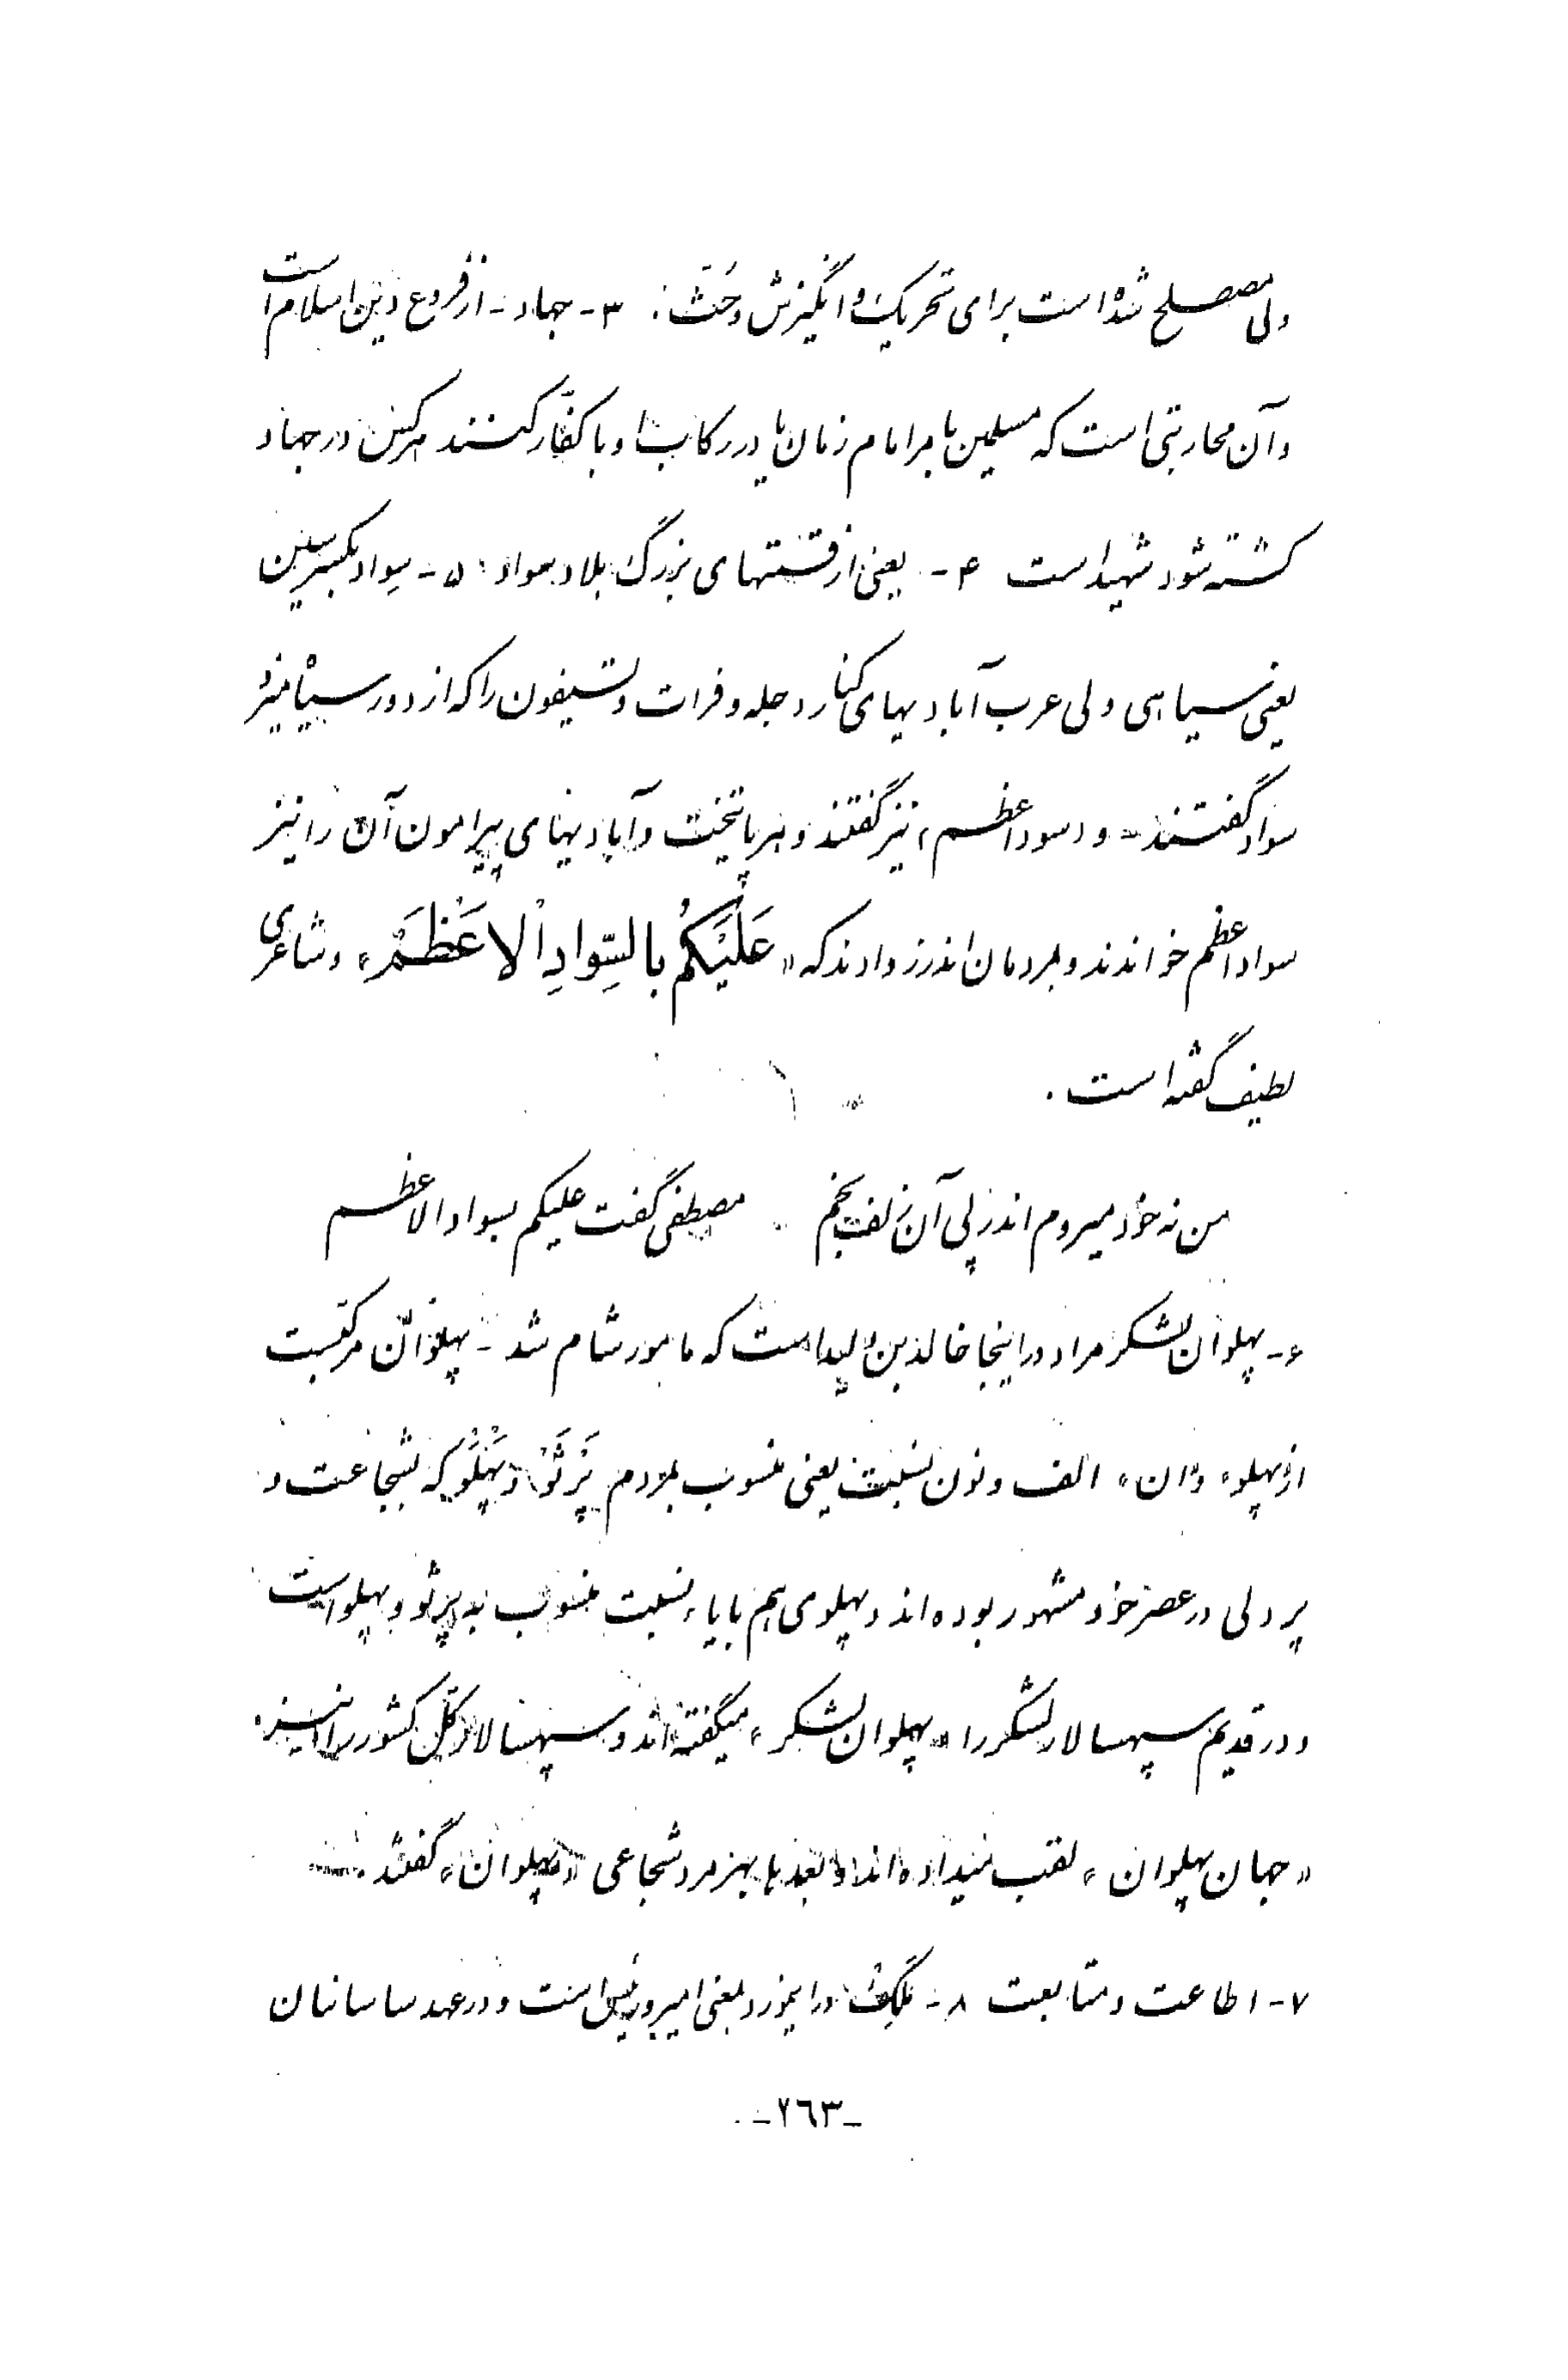 ولی مصطلح شده است برای تحریک و انگیزش و حَثّ. ۳- جهاد - از فروع دین اسلام است
و آن محاربتی است که مسلمین بامر امام زمان یا در رکاب او با کفّار کنند هرکس در جهاد
کشته شود شهید است ۴- یعنی از قسمتهای بزرگ بلاد سواد ۵- سِواد بکسر سین
یعنی سیاهی ولی عرب آبادیهای کنار دجله و فرات و تسیفون را که از دور سیاه میزد
سواد گفتند - و «سواد اعظم» نیز گفتند و هر پایتخت و آبادیهای پیرامون آن را نیز
سواد اعظم خواندند و بمردمان اندرز دادند که «عَلَیْکُمْ بِالسِّوادِ الْاَعْظَمْ» و شاعری
لطیف گفته است.
من نه خود میروم اندر پی آن زلف بخم مصطفی گفت علیکم بسواد الاعظم
۶- پهلوان لشکر مراد در اینجا خالد بن ولید است که مامور شام شد - پهلوان مرکبست
از «پهلو» و «ان» الف و نون نسبت یعنی منسوب بمردم پَرثَوْ و پَهْلَوْ که بشجاعت و
پر دلی در عصر خود مشهور بوده‌اند و پهلوی هم با یاء نسبت منسوب به پرثو و پهلو است
و در قدیم سپهسالار لشکر را «پهلوان لشکر» میگفته‌اند و سپهسالار کلّ کشور را نیز
«جهان پهلوان» لقب میداده‌اند و بعدها بهر مرد شجاعی «پهلوان» گفتند.
۷- اطاعت و متابعت ۸- مَلِک در اینمورد بمعنی امیر و رئیس است و در عهد ساسانیان
-۲۶۳-